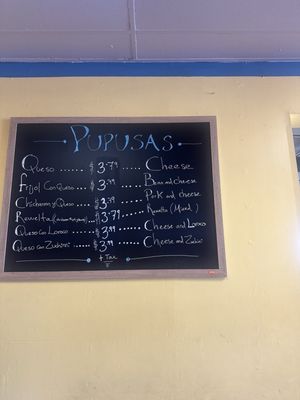 PUPUSAS
Queso ...... $3.79 ...... Cheese
Frijol Con Queso ..... $3.99 ..... Bean and cheese
Chicharron y Queso ..... $3.99 ..... Pork and cheese
Revuelta ... $3.79 ..... Revuelta (Mixed)
Queso con Loroco ..... $3.99 ..... Cheese and Loroco
Queso con Zucchini ..... $3.99 ..... Cheese and Zucchini
+ Tax